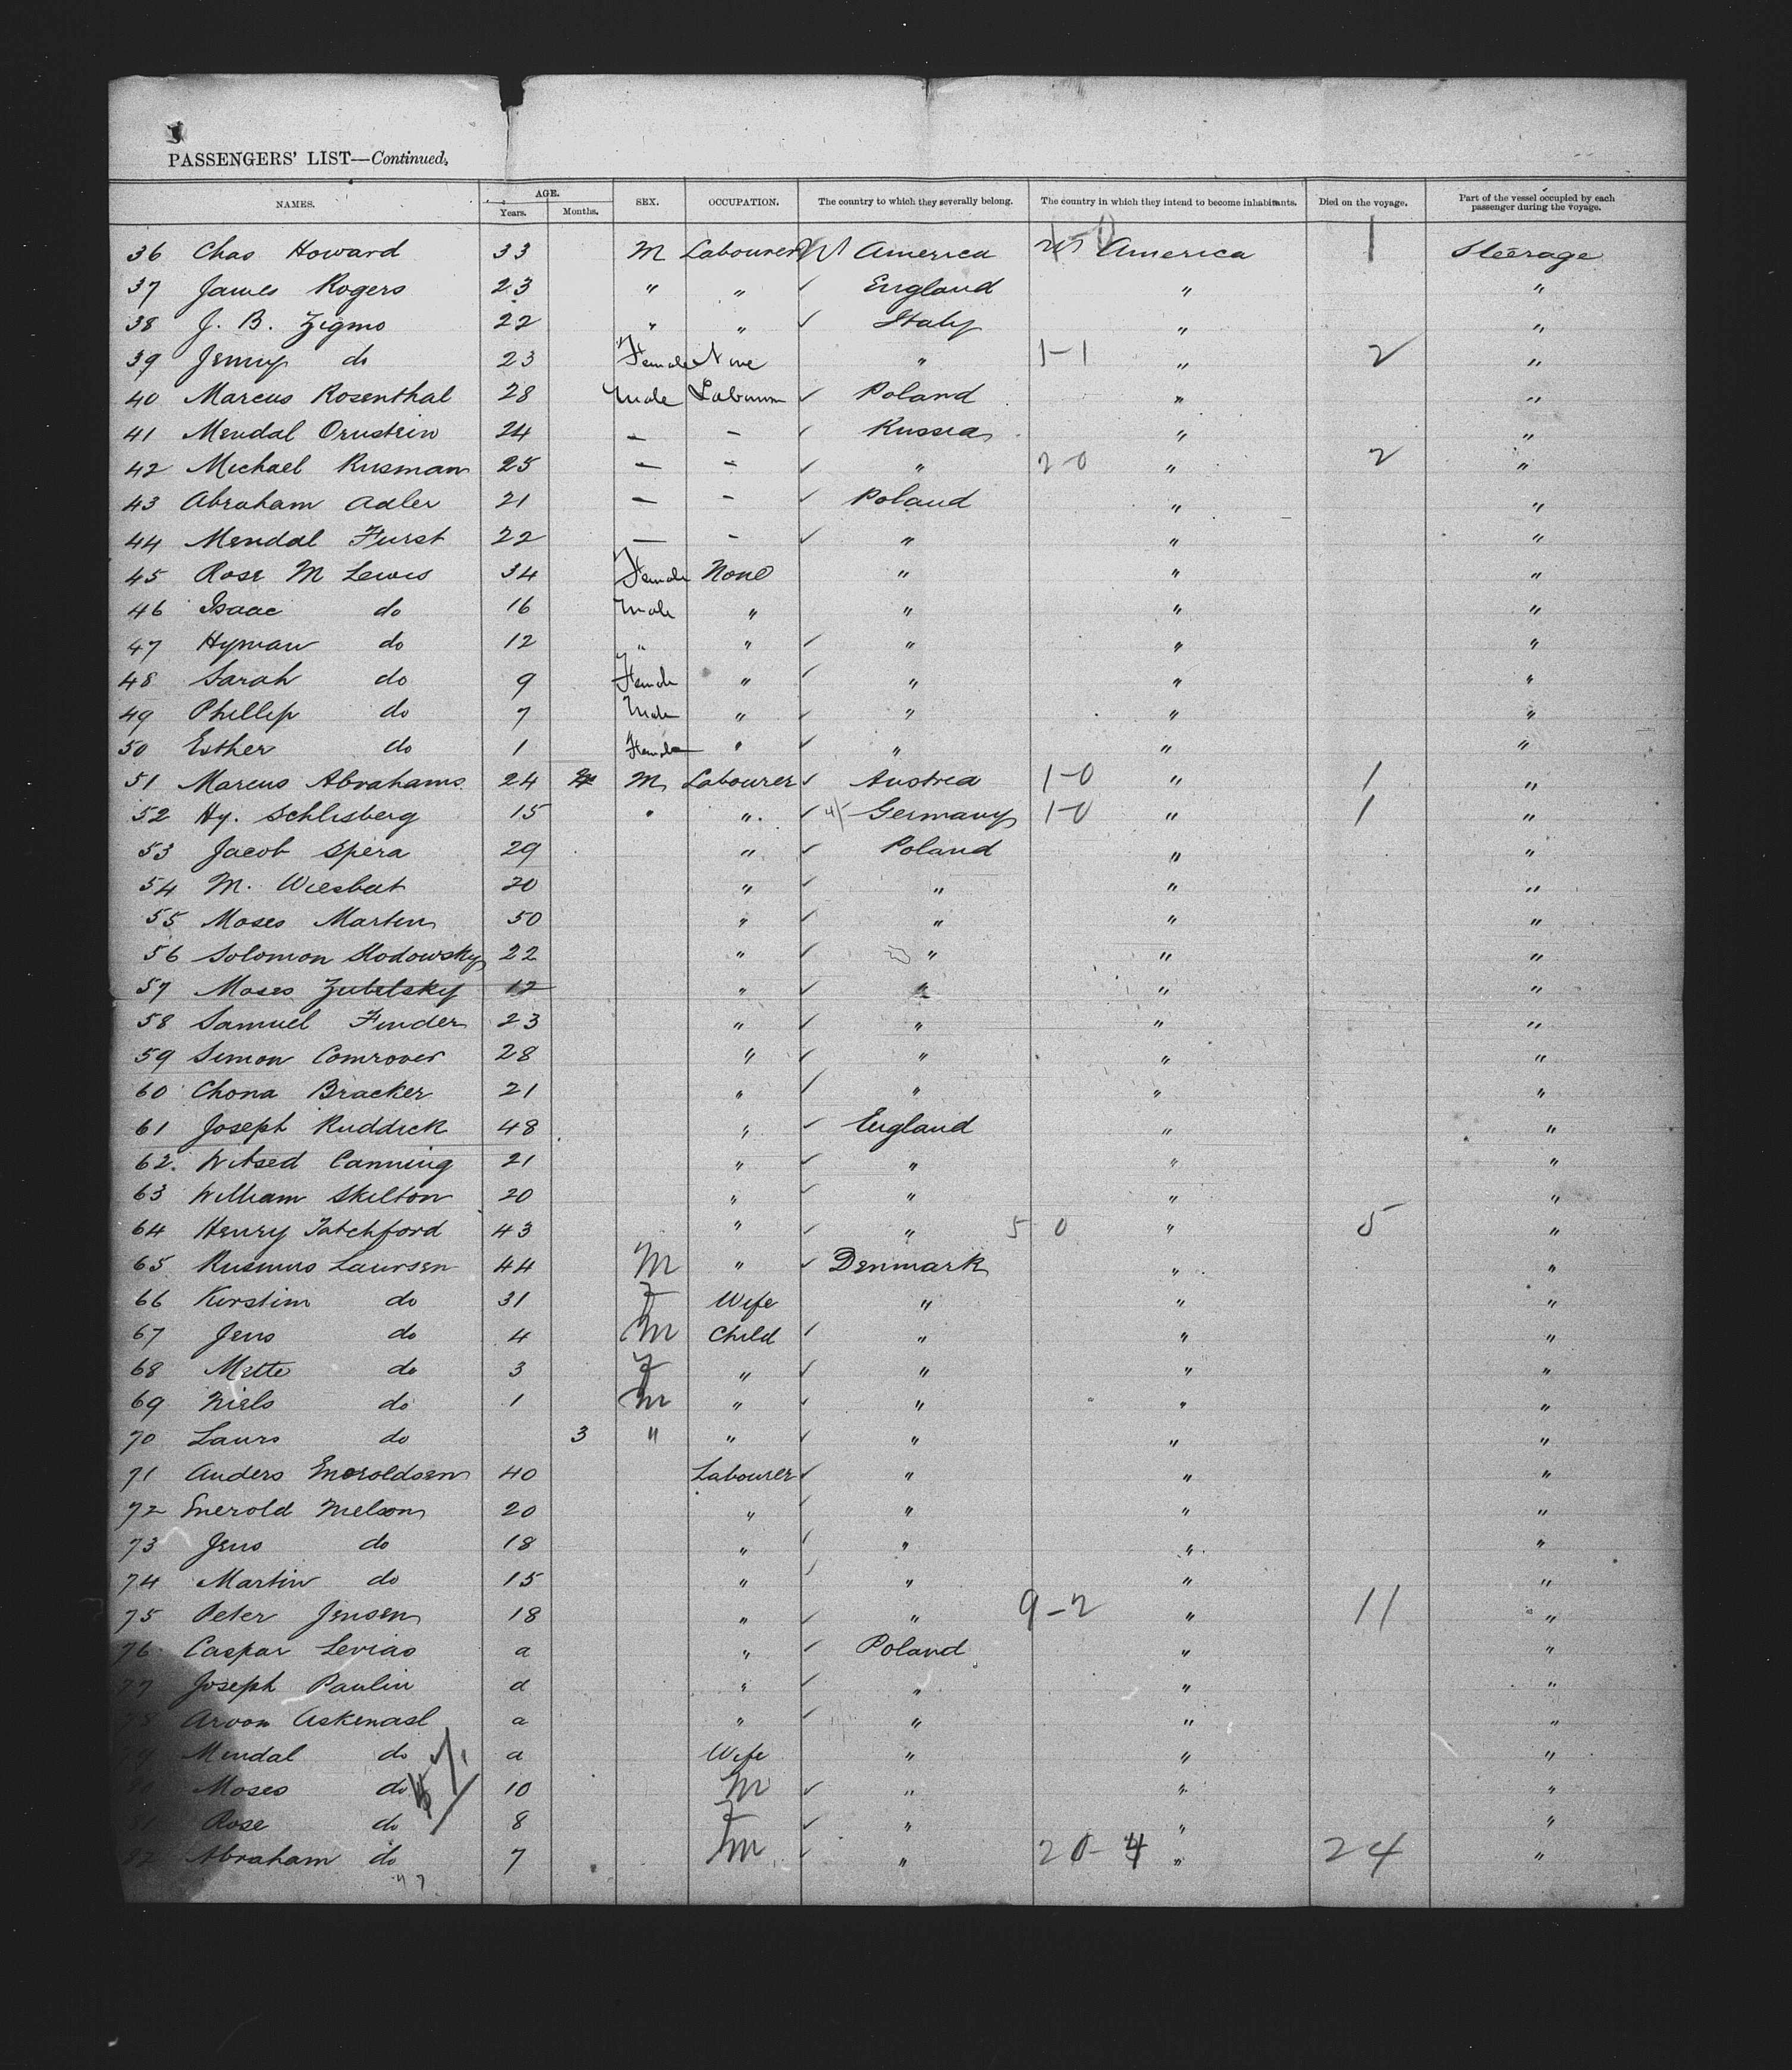 PASSENGERS' LIST—Continued.
NAMES. AGE. Years. Months. SEX. OCCUPATION. The country to which they severally belong. The country in which they intend to become inhabitants. Died on the voyage. Part of the vessel occupied by each passenger during the voyage.
36 Chas Howard 33 M Labourer America 1-0 America 1 Steerage
37 James Rogers 23 " " ✓ England " "
38 J. B. Zigmo 22 " " ✓ Italy " "
39 Jenny do 23 Female None " 1-1 " 2 "
40 Marcus Rosenthal 28 Male ✓ Poland " "
41 Mendal Ornstein 24 – – ✓ Russia " "
42 Michael Rusman 25 – – ✓ " 2-0 " 2 "
43 Abraham Adler 21 – – ✓ Poland " "
44 Mendal Furst 22 – – ✓ " " "
45 Rose M Lewis 34 Female None " " "
46 Isaac do 16 Male " " " "
47 Hyman do 12 " " ✓ " " "
48 Sarah do 9 Female " ✓ " " "
49 Phillip do 7 Male " ✓ " " "
50 Esther do 1 Female " ✓ " " "
51 Marcus Abrahams 24 M Labourer ✓ Austria 1-0 " 1 "
52 Hy. Schlisberg 15 " " ✓ Germany 1-0 " 1 "
53 Jacob Spera 29 " ✓ Poland " "
54 M. Wiesbat 20 " ✓ " " "
55 Moses Martin 50 " ✓ " " "
56 Solomon 22 " ✓ " " "
57 Moses Zubelsky 12 " ✓ " " "
58 Samuel Finder 23 " ✓ " " "
59 Simon Comrover 28 " ✓ " " "
60 Chona Bracker 21 " ✓ " " "
61 Joseph Ruddick 48 " ✓ England " "
62. Canning 21 " ✓ " " "
63 William Skelton 20 " ✓ " " "
64 Henry Tatchford 43 " ✓ " 5 0 " 5 "
65 Rasmus Laursen 44 M " ✓ Denmark " "
66 Kirstine do 31 F Wife " " "
67 Jens do 4 M Child ✓ " " "
68 Mette do 3 F " ✓ " " "
69 Niels do 1 M " ✓ " " "
70 Laurs do 3 " " ✓ " " "
71 Anders Eneroldsen 40 Labourer ✓ " " "
72 Enerold Nielson 20 " ✓ " " "
73 Jens do 18 " ✓ " " "
74 Martin do 15 " ✓ " " "
75 Peter Jensen 18 " ✓ " 9-2 " 11 "
76 Caspar Levias a " ✓ Poland " "
77 Joseph Paulin a " ✓ " " "
78 Arvon Askenasl a " ✓ " " "
Mendal do a Wife " " "
Moses do 10 M ✓ " " "
81 Rose do 8 F ✓ " " "
82 Abraham do 7 M ✓ " 20-4 " 24 "